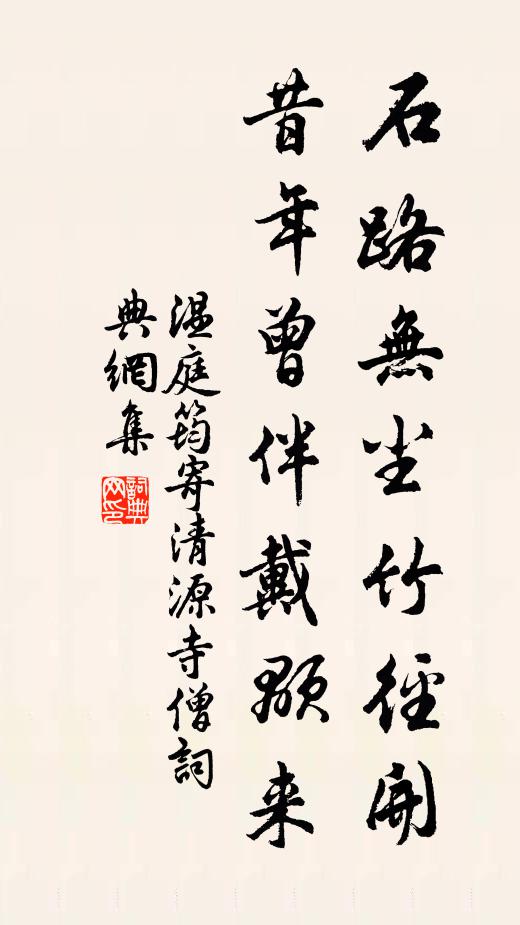 石路無尘竹徑開
昔年曾伴戴顒来
温庭筠寄清源寺僧詞
典網集
詞典网印